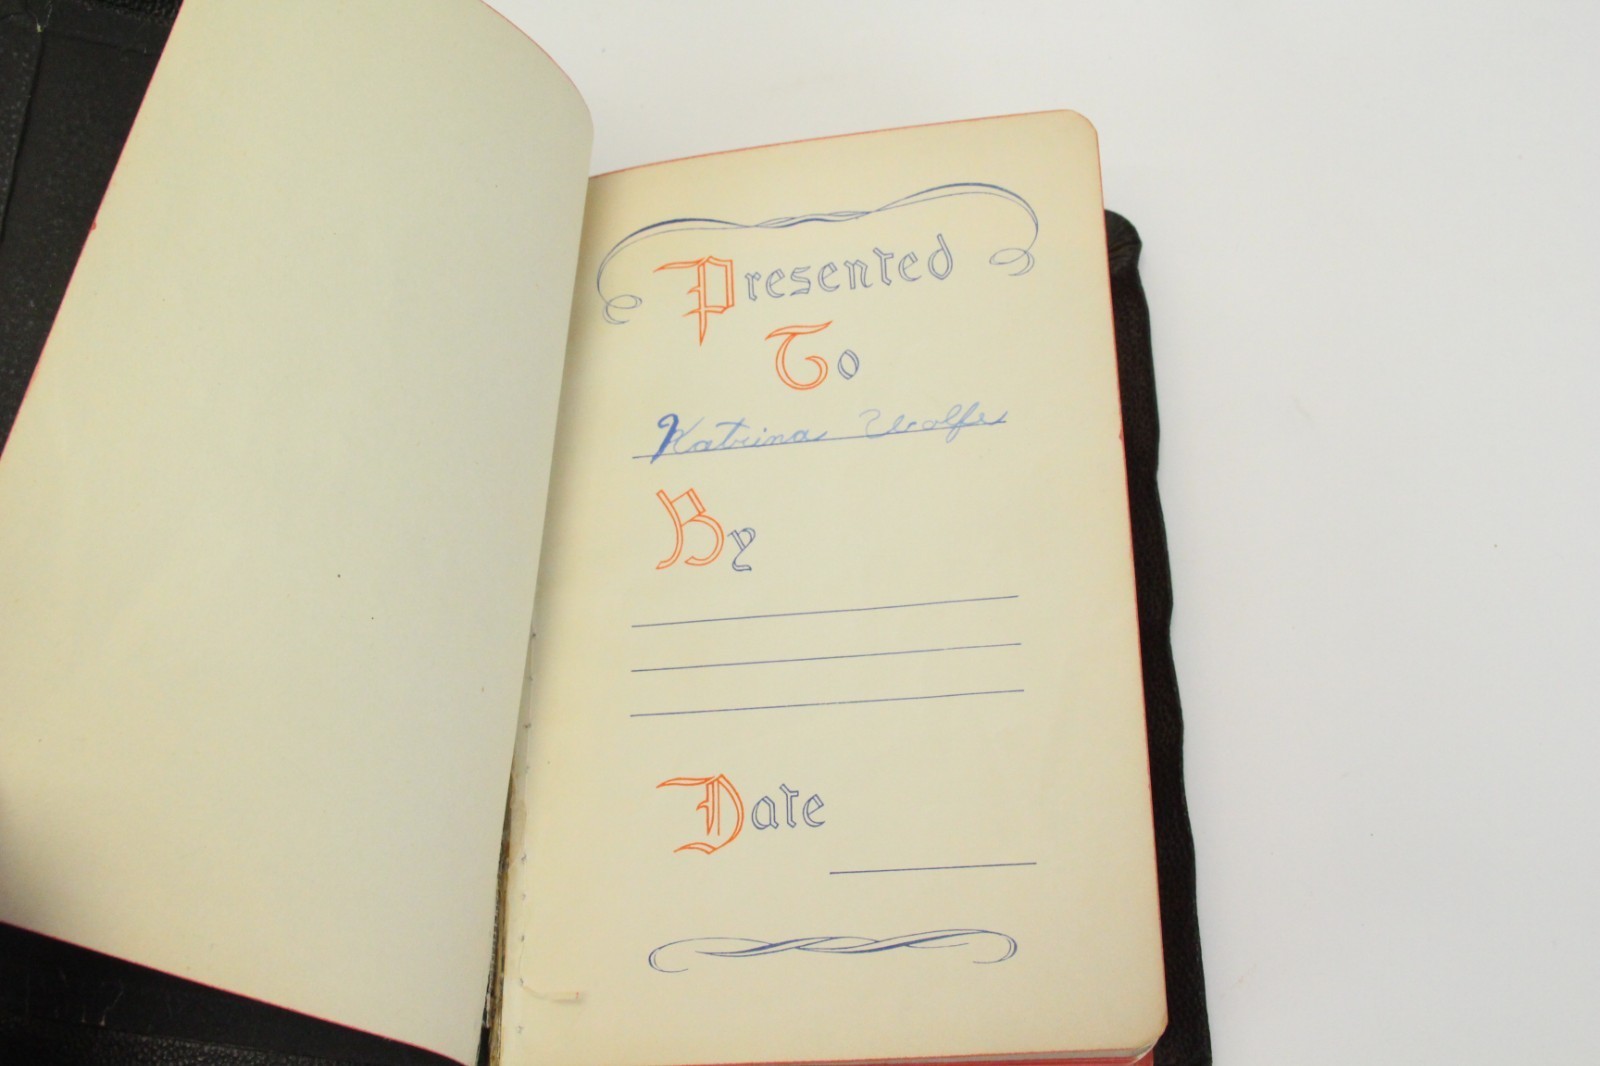 Presented
To
Katrina Wolfe
By
Date